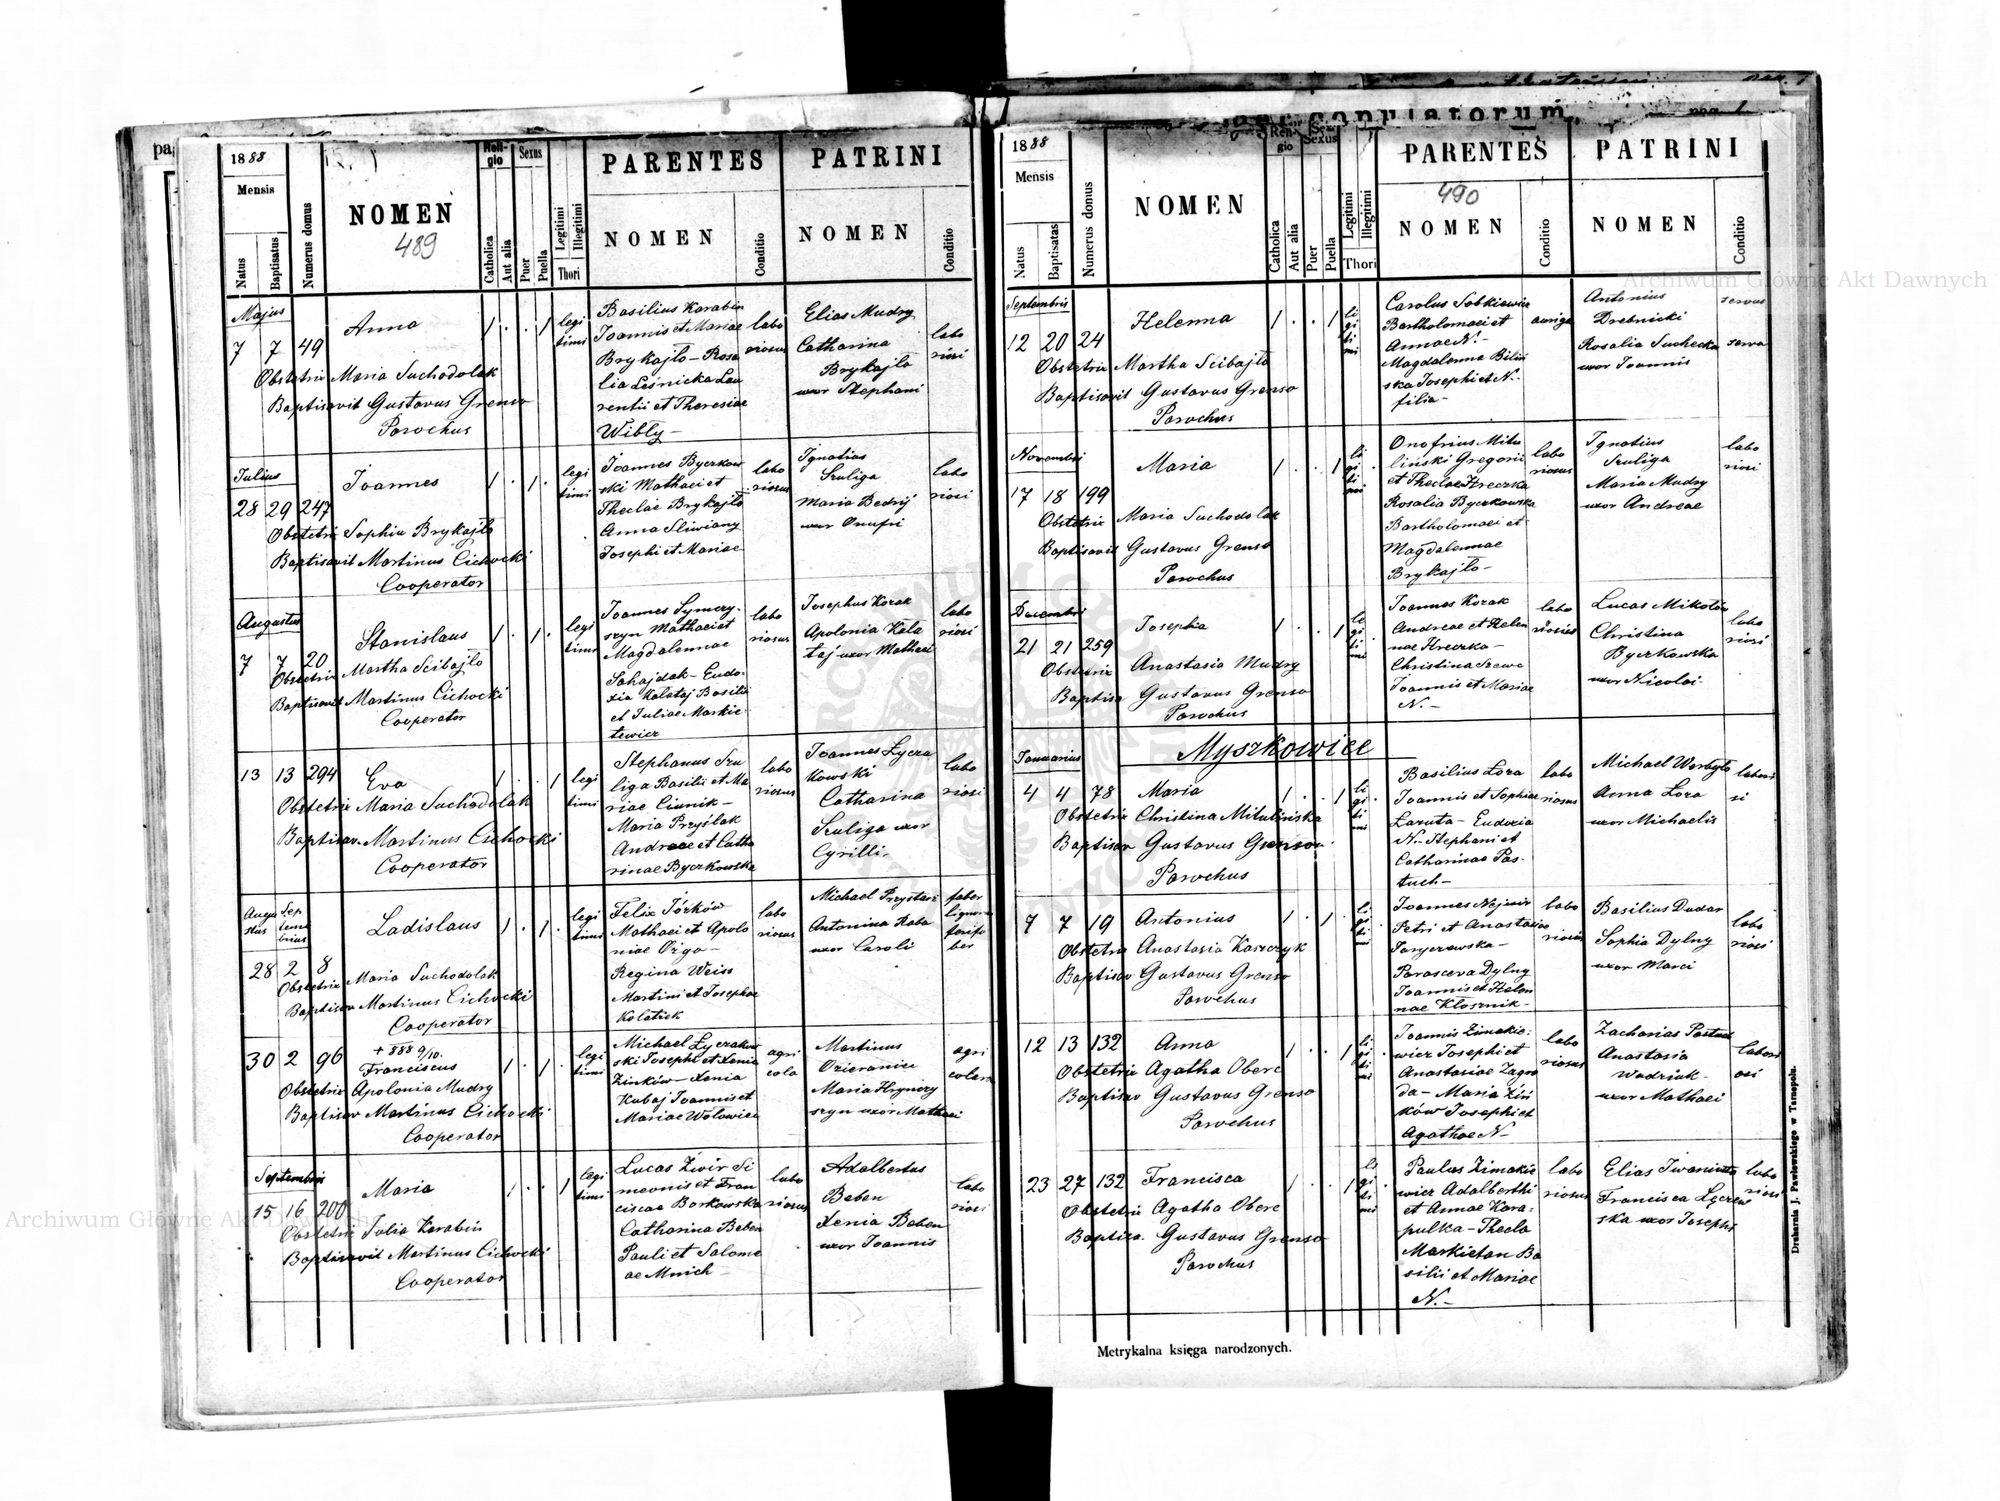 1888
Mensis
Natus
Baptisatus
Numerus domus
NOMEN
489
Religio
Catholica
Aut alia
Sexus
Puer
Puella
Legitimi
Illegitimi
Thori
PARENTES
NOMEN
Conditio
PATRINI
NOMEN
Conditio
Majus
7 7 49
Anna
Obstetrix Maria Suchodolak
Baptisavit Gustavus Grenso
Parochus
legi
timi
Basilius Karabin
Joannis et Mariae
Brykajło - Rosa
lia Leśnicka Lau
rentii et Theresiae
Wibły -
labo
riosus
Elias Mudry
Catharina
Brykajło
uxor Stephani
labo
riosi
Julius
28 29 247
Joannes
Obstetrix Sophia Brykajło
Baptisavit Martinus Cichocki
Cooperator
legi
timi
Joannes Byczkow
ski Mathaei et
Theclae Brykajło
Anna Sliwiany
Josephi et Mariae
labo
riosus
Ignatius
Szuliga
Maria Bedrij
uxor Onufri
labo
riosi
Augustus
7 7 20
Stanislaus
Obstetrix Martha Scibajło
Baptisavit Martinus Cichocki
Cooperator
legi
timi
Joannes Symczy-
szyn Mathaei et
Magdalennae
Sahajdak - Eudo-
xia Kalataj Basilii
et Juliae Markie-
tewicz
labo
riosus
Josephus Kozak
Apolonia Kala
taj uxor Mathaei
labo
riosi
13 13 294
Eva
Obstetrix Maria Suchodolak
Baptisav. Martinus Cichocki
Cooperator
legi
timi
Stephanus Szu
liga Basilii et Ma
riae Ciunik -
Maria Przyślak
Andreae et Catha
rinae Byczkowska
labo
riosus
Joannes Łycza
kowski
Catharina
Szuliga uxor
Cyrilli.
labo
riosi
Augu
stus
Sep
tem
brius
28 2 8
Ladislaus
Obstetrix Maria Suchodolak
Baptisav Martinus Cichocki
Cooperator
legi
timi
Felix Jórków
Mathaei et Apolo
niae Ożga -
Regina Weiss
Martini et Josephae
Kolatick
labo
riosus
Michael Przystasz
Antonina Kaba
uxor Caroli
faber
30 2 96
+ 888 9/10.
Franciscus
Obstetrix Apolonia Mudry
Baptisav Martinus Cichocki
Cooperator
legi
timi
Michael Łyczakow
ski Josephi et Xenia
Zinków - Xenia
Kubaj Joannis et
Mariae Wołowiec
agri
cola
Martinus
Ozieranice
Maria Hrynczy
szyn uxor Mathaei
agri
colae
Septembris
15 16 200
Maria
Obstetrix Julia Karabin
Baptisavit Martinus Cichocki
Cooperator
legi
timi
Lucas Żwir Si
meonis et Fran
ciscae Borkowska
Catharina Beben
Pauli et Salome
ae Mnich -
labo
riosus
Adalbertus
Beben
Xenia Beben
uxor Joannis
labo
riosi
1888
Mensis
Natus
Baptisatus
Numerus domus
NOMEN
Religio
Catholica
Aut alia
Sexus
Puer
Puella
Legitimi
Illegitimi
Thori
PARENTES
490
NOMEN
Conditio
PATRINI
NOMEN
Conditio
Septembris
12 20 24
Helenna
Obstetrix Martha Scibajło
Baptisavit Gustavus Grenso
Parochus
li
gi
ti
mi
Carolus Sobkiewicz
Bartholomaei et
Annae N. -
Magdalenna Bilin
ska Josephi et N. -
filia -
auriga
Antonius
Drebnicki
Rosalia Suchecka
uxor Joannis
servus
serva
Novembris
17 18 199
Maria
Obstetrix Maria Suchodolak
Baptisavit Gustavus Grenso
Parochus
li
gi
ti
mi
Onofrius Mitu
liński Gregorii
et Theclae Hreczka
Rosalia Byczkowska
Bartholomaei et
Magdalennae
Brykajło -
labo
riosus
Ignatius
Szuliga
Maria Mudry
uxor Andreae
labo
riosi
Decembri
21 21 259
Josepha
Obstetrix Anastasia Mudry
Baptisa Gustavus Grenso
Parochus
le
gi
ti
mi
Joannes Kozak
Andreae et Helen
nae Hreczka -
Christina Szewc
Joannis et Mariae
N. -
labo
riosus
Lucas Mikołów
Christina
Byczkowska
uxor Nicolai -
labo
riosi
Myszkowice
Januarius
4 4 78
Maria
Obstetrix Christina Mitulińska
Baptisav Gustavus Grenso
Parochus
li
gi
ti
mi
Basilius Łoza
Joannis et Sophiae
Łazuta - Eudoxia
N. Stephani et
Catharinae Pas-
tuch -
labo
riosus
Michael Worbyło
Anna Łoza
uxor Michaelis
labori
si
7 7 19
Antonius
Obstetrix Anastasia Kaszczyk
Baptisav Gustavus Grenso
Parochus
li
gi
ti
mi
Petri et Anastasiae
Parasceva Dylny
Joannis et Helen
nae Klosznik -
labo
riosus
Basilius Dudar
Sophia Dylny
uxor Marci
labo
riosi
12 13 132
Anna
Obstetrix Agatha Oberc
Baptisav Gustavus Grenso
Parochus
li
gi
ti
mi
Joannis Zimakie-
wicz Josephi et
Anastasiae Zagro
da - Maria Ziń
ków Josephi et
Agathae N -
labo
riosus
Zacharias Pastuch
Anastasia
Wodziuk -
uxor Mathaei
labori
osi
23 27 132
Francisca
Obstetrix Agatha Oberc
Baptisa. Gustavus Grenso
Parochus
li
gi
ti
mi
Paulus Zimakie
wicz Adalberthi
et Annae Kara-
pulka - Thecla
Markietan Ba
silii et Mariae
N. -
labo
riosus
Elias
Francisca
ska uxor Josephi
labo
riosi
Metrykalna księga narodzonych.
Drukarnia J. Pawłowskiego w Tarnopolu.
Archiwum Główne Akt Dawnych
Archiwum Główne Akt Dawnych